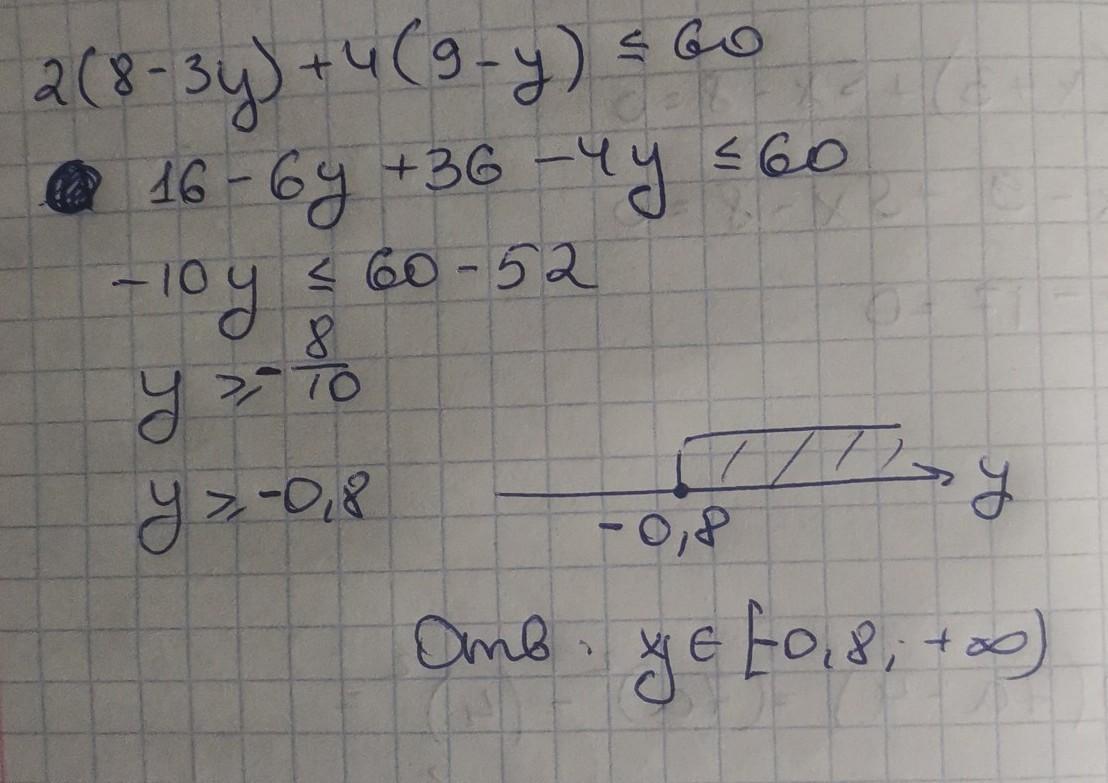 2(8-3y)+4(9-y) ≤ 60
16-6y+36-4y ≤ 60
-10y ≤ 60-52
y ≥ -8/10
y ≥ -0,8
-0,8 y
Отв. y ∈ [-0,8; +∞)